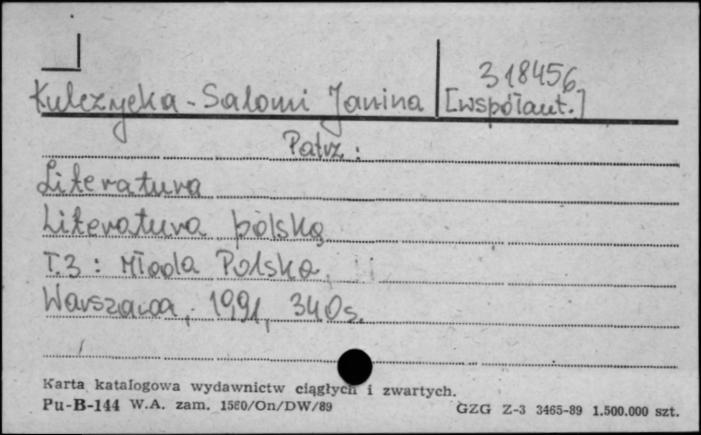 318456
Kulczycka-Saloni Janina [współaut.]
Patrz:
Literatura
Literatura polska
T.3: Młoda Polska
Warszawa, 1991, 340s.
Karta katalogowa wydawnictw ciągłych i zwartych.
Pu-B-144 W.A. zam. 1560/On/DW/89 GZG Z-3 3465-89 1.500.000 szt.